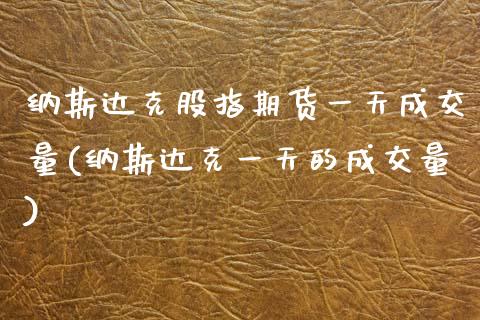 纳斯达克股指期货一天成交
量(纳斯达克一天的成交量
)